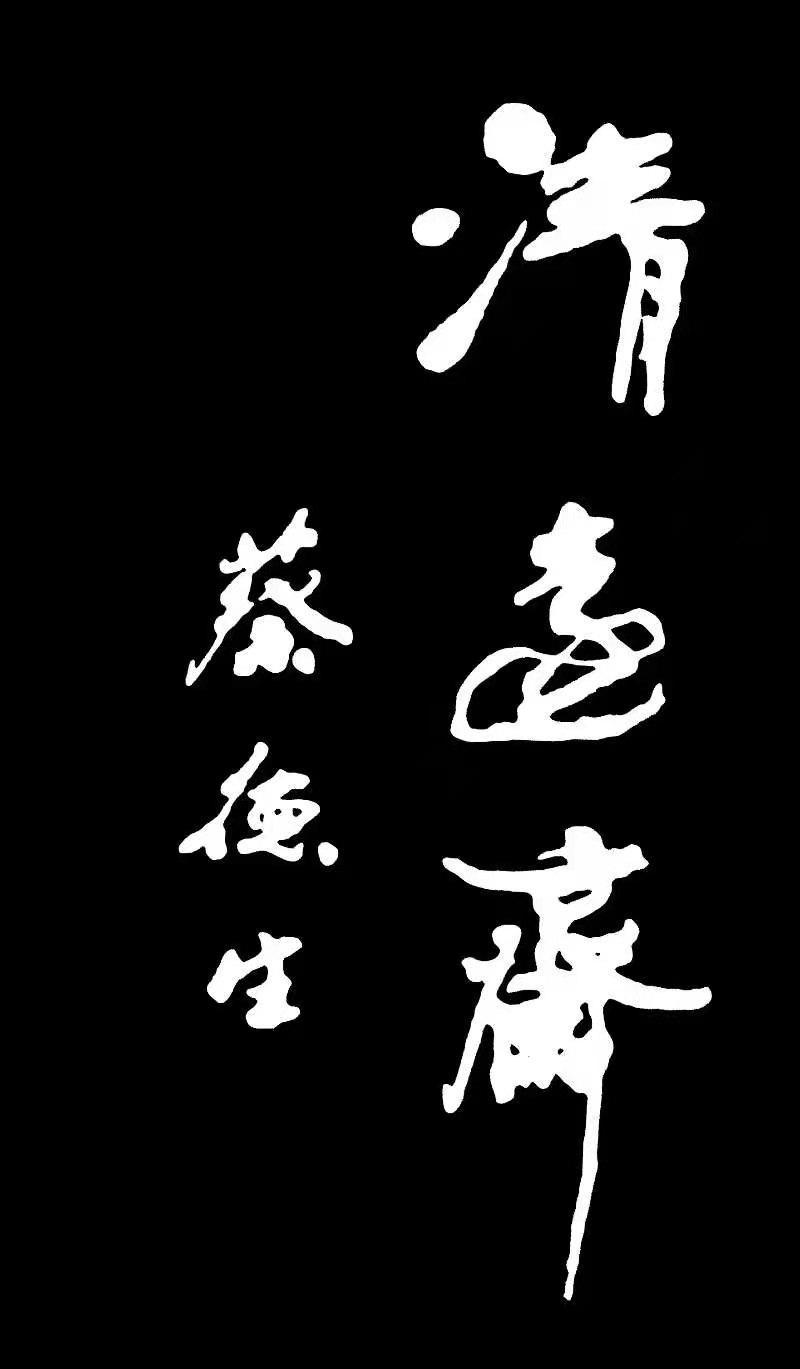 清遠齋
蔡德生